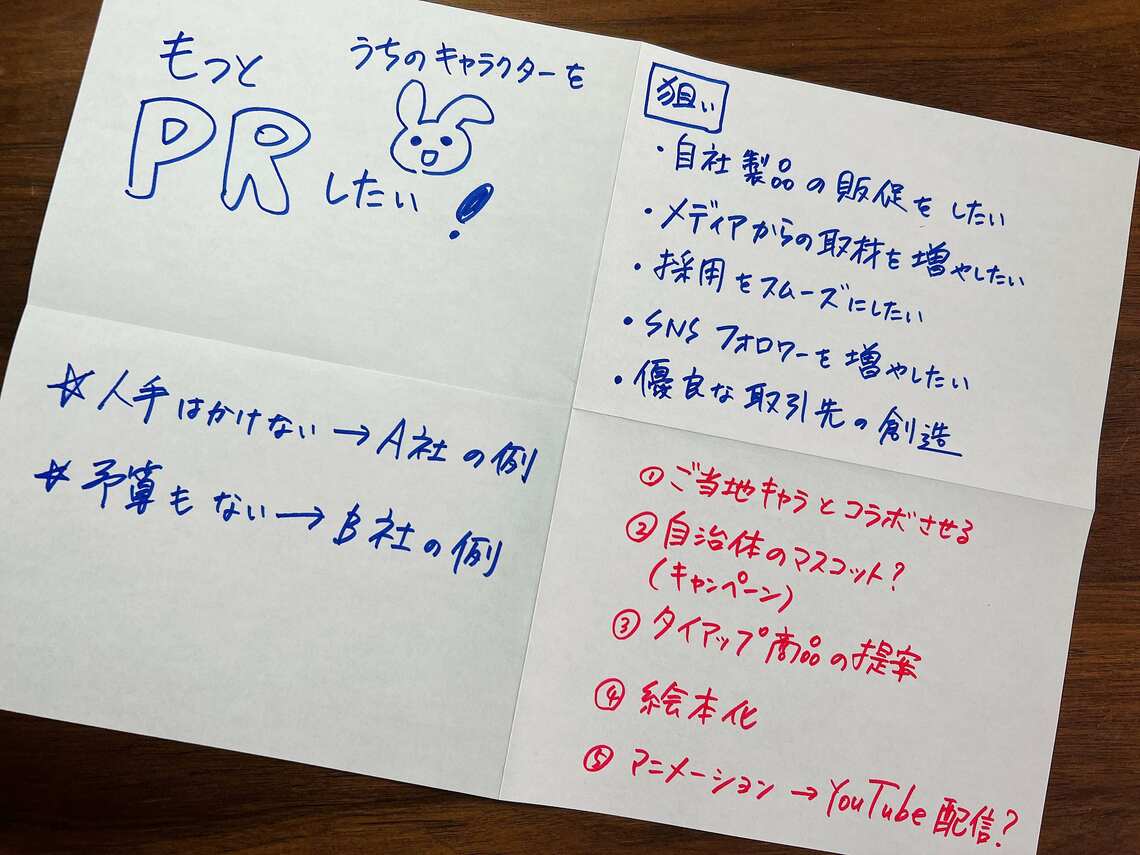 うちのキャラクターを
もっと
PRしたい!
狙い
・自社製品の販促をしたい
・メディアからの取材を増やしたい
・採用をスムーズにしたい
・SNSフォロワーを増やしたい
・優良な取引先の創造
☆人手はかけない→A社の例
☆予算もない→B社の例
①ご当地キャラとコラボさせる
②自治体のマスコット?
(キャンペーン)
③タイアップ商品の提案
④絵本化
⑤アニメーション→YouTube配信?